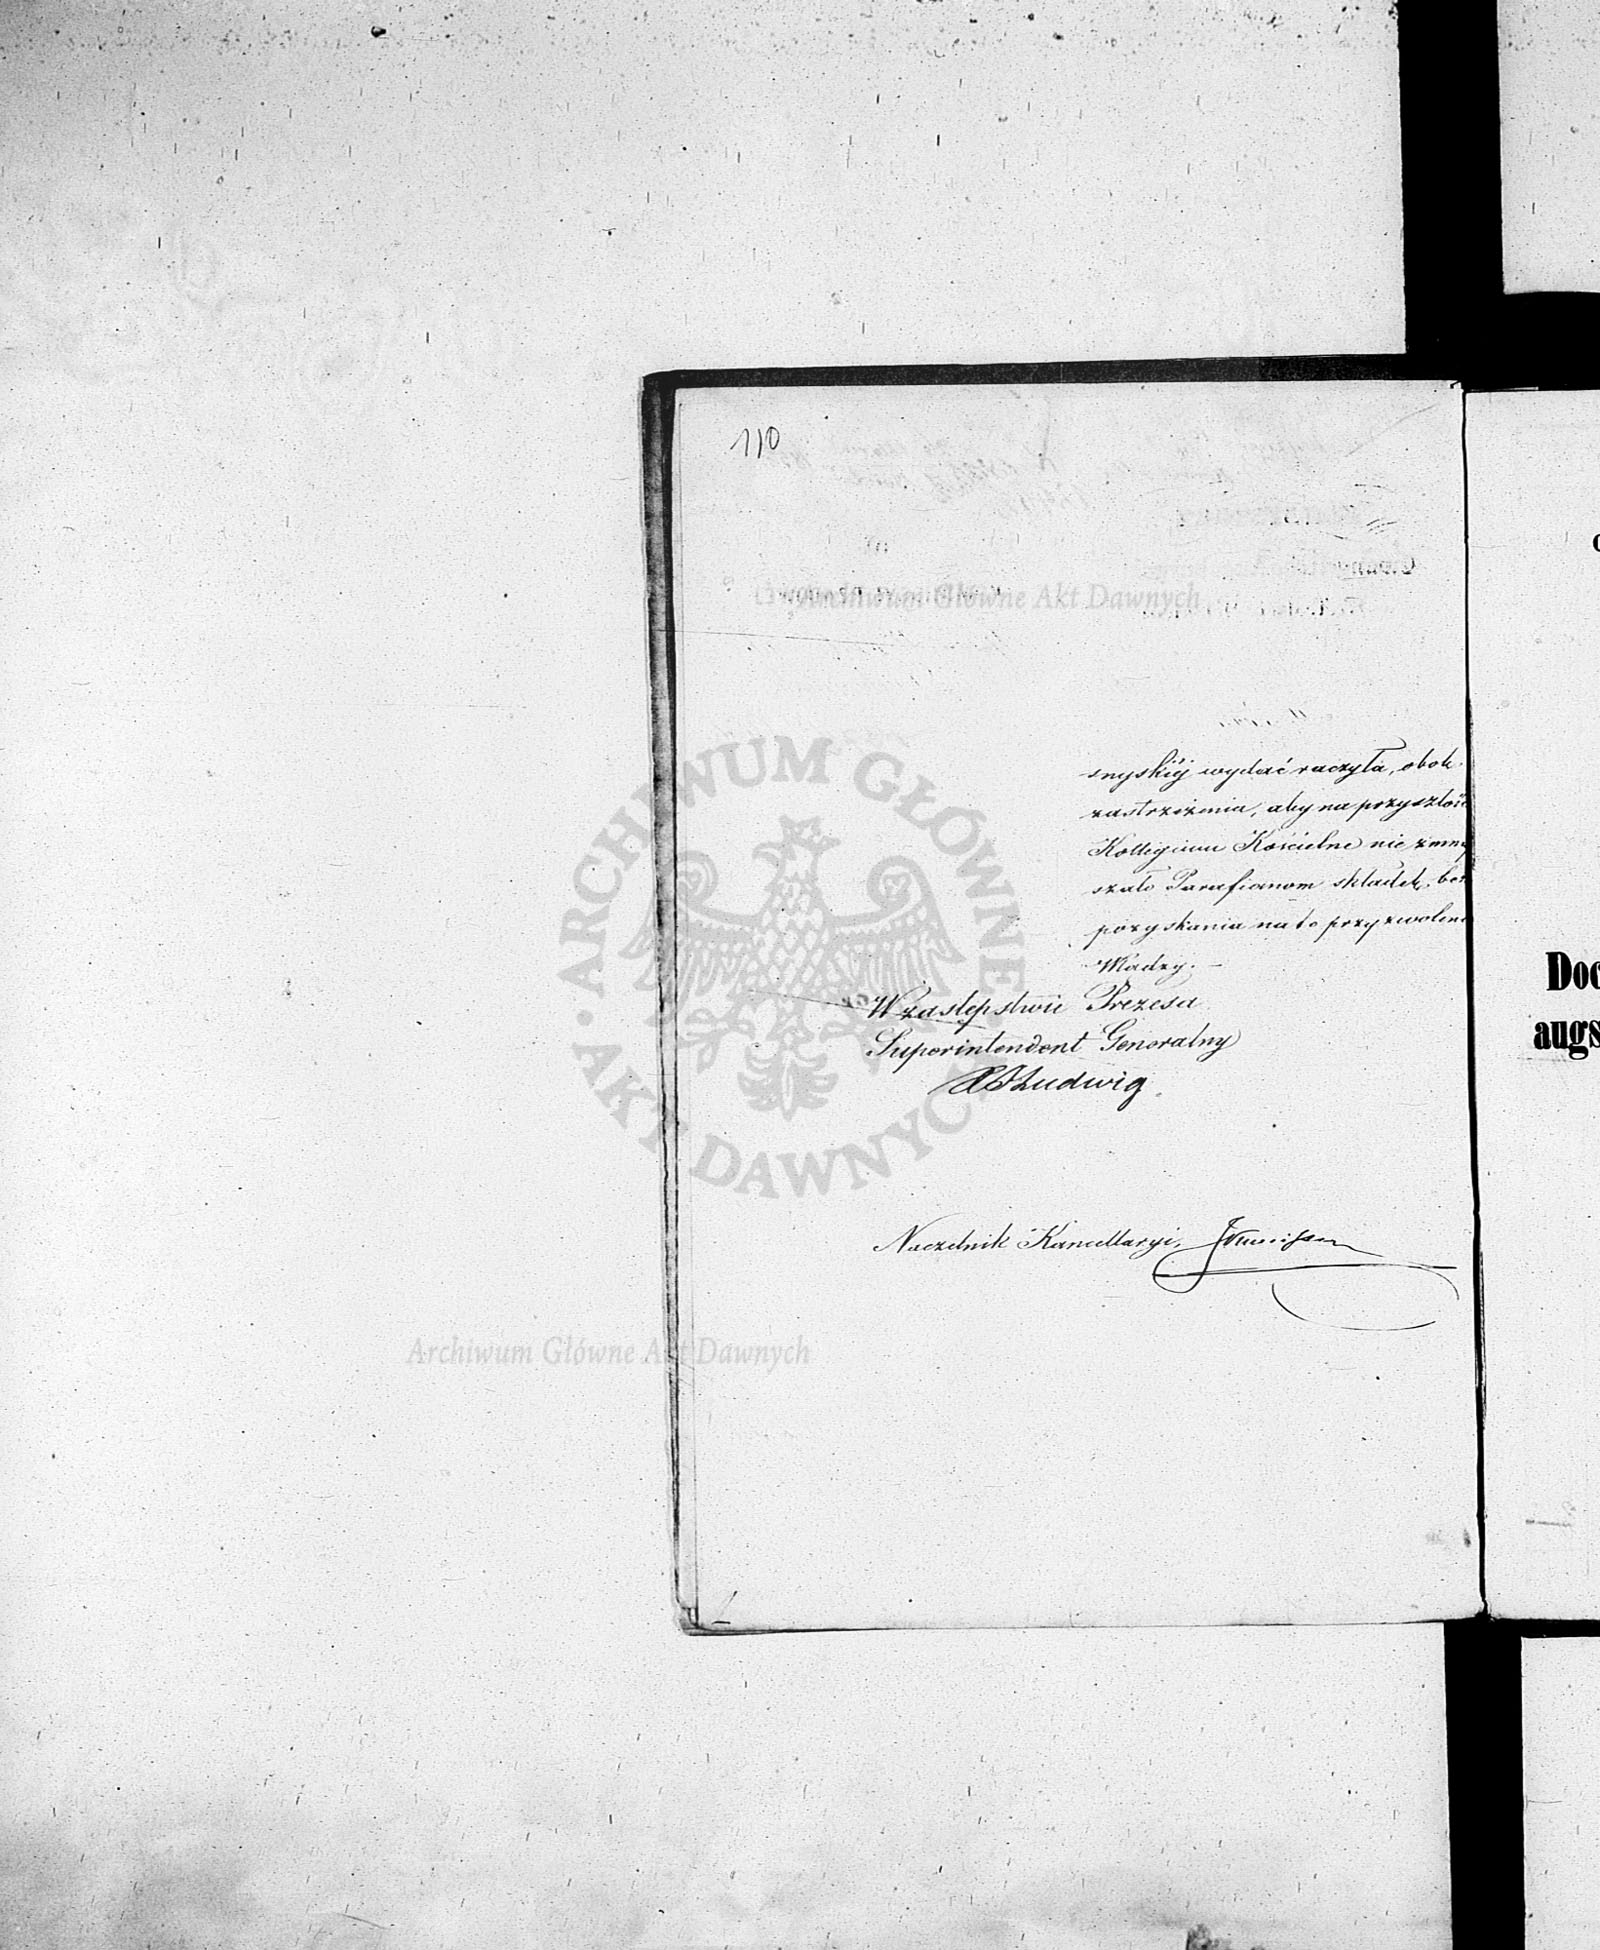 110
Archiwum Główne Akt Dawnych
snyskiéj wydać raczyła, obok
zastrzeżenia, aby na przyszłość
Kollegium Kościelne nie zmny
szało Parafianom składek, bez
pozyskania na to przyzwoleni
Władzy. –
W zastępstwie Prezesa
Superintendent Generalny
Ludwig.
ARCHIWUM GŁÓWNE
AKT DAWNYCH
Naczelnik Kancellaryi,
Archiwum Główne Akt Dawnych
Doc
augs